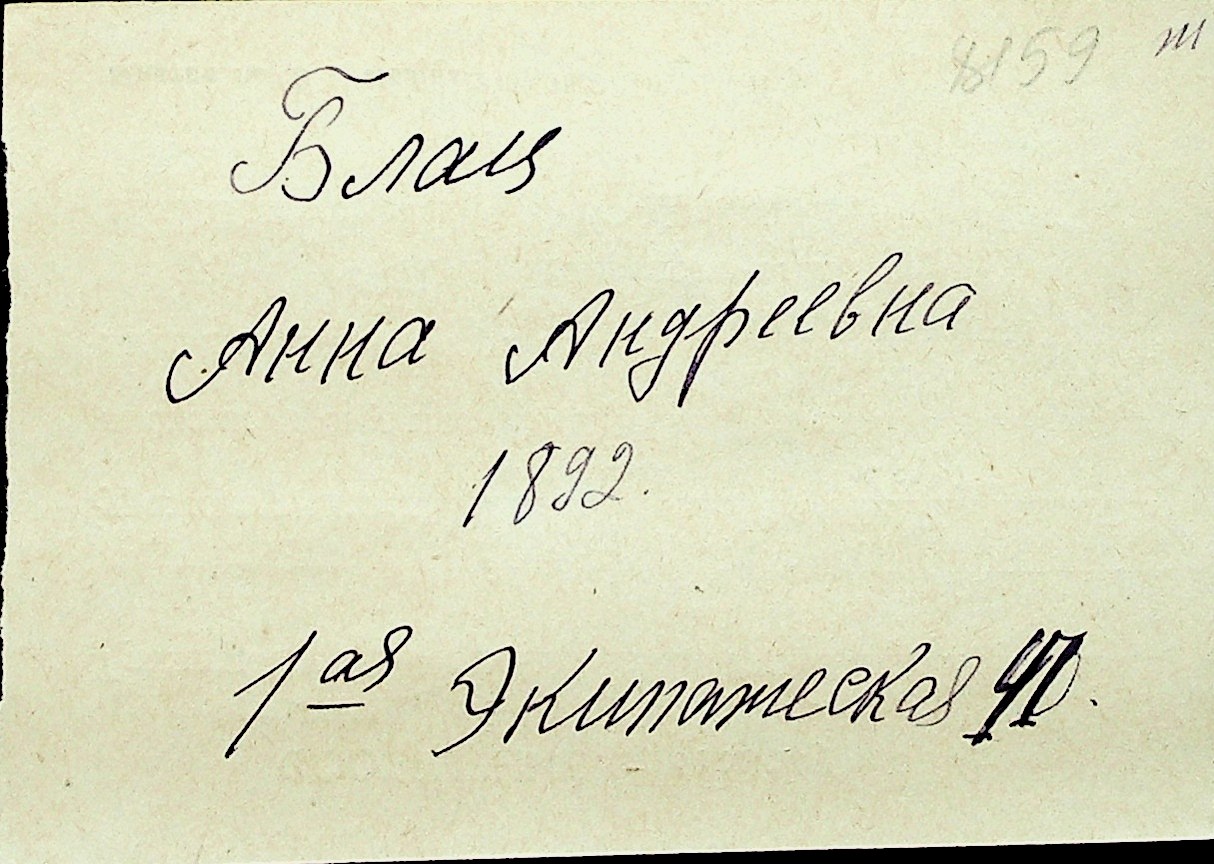 8159 т
Блащ
Анна Андреевна
1892.
1ая Экипажеская